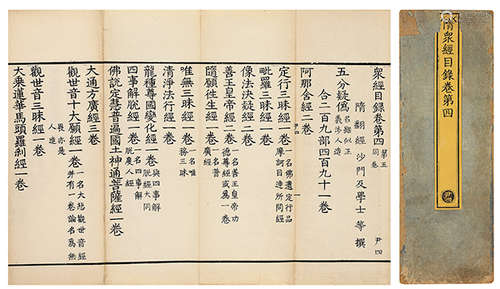 眾經目錄卷第四 第五同卷 尹四
隋翻經沙門及學士等撰
五分疑偽 名雖似正義涉人造
合二百九部四百九十一卷
阿那含經二卷
定行三昧經一卷 一名佛遺定行品摩訶目連所問經
毗羅三昧經一卷
像法決疑經二卷
善王皇帝經二卷 一名善王皇帝功德尊經或為一卷
隨願往生經一卷
唯無三昧經一卷 一名唯務三昧
清淨法行經一卷
龍種尊國變化經一卷 與四事解脫經大同
四事解脫經一卷 一名四事解脫度人經
佛說定慧普遍國土神通菩薩經一卷
大通方廣經三卷
觀世音十大願經一卷 一名大悲觀世音經并有一卷論名為
觀世音三昧經一卷 畏亦是人造
大乘蓮華馬頭羅剎經一卷
隋眾經目錄卷第四